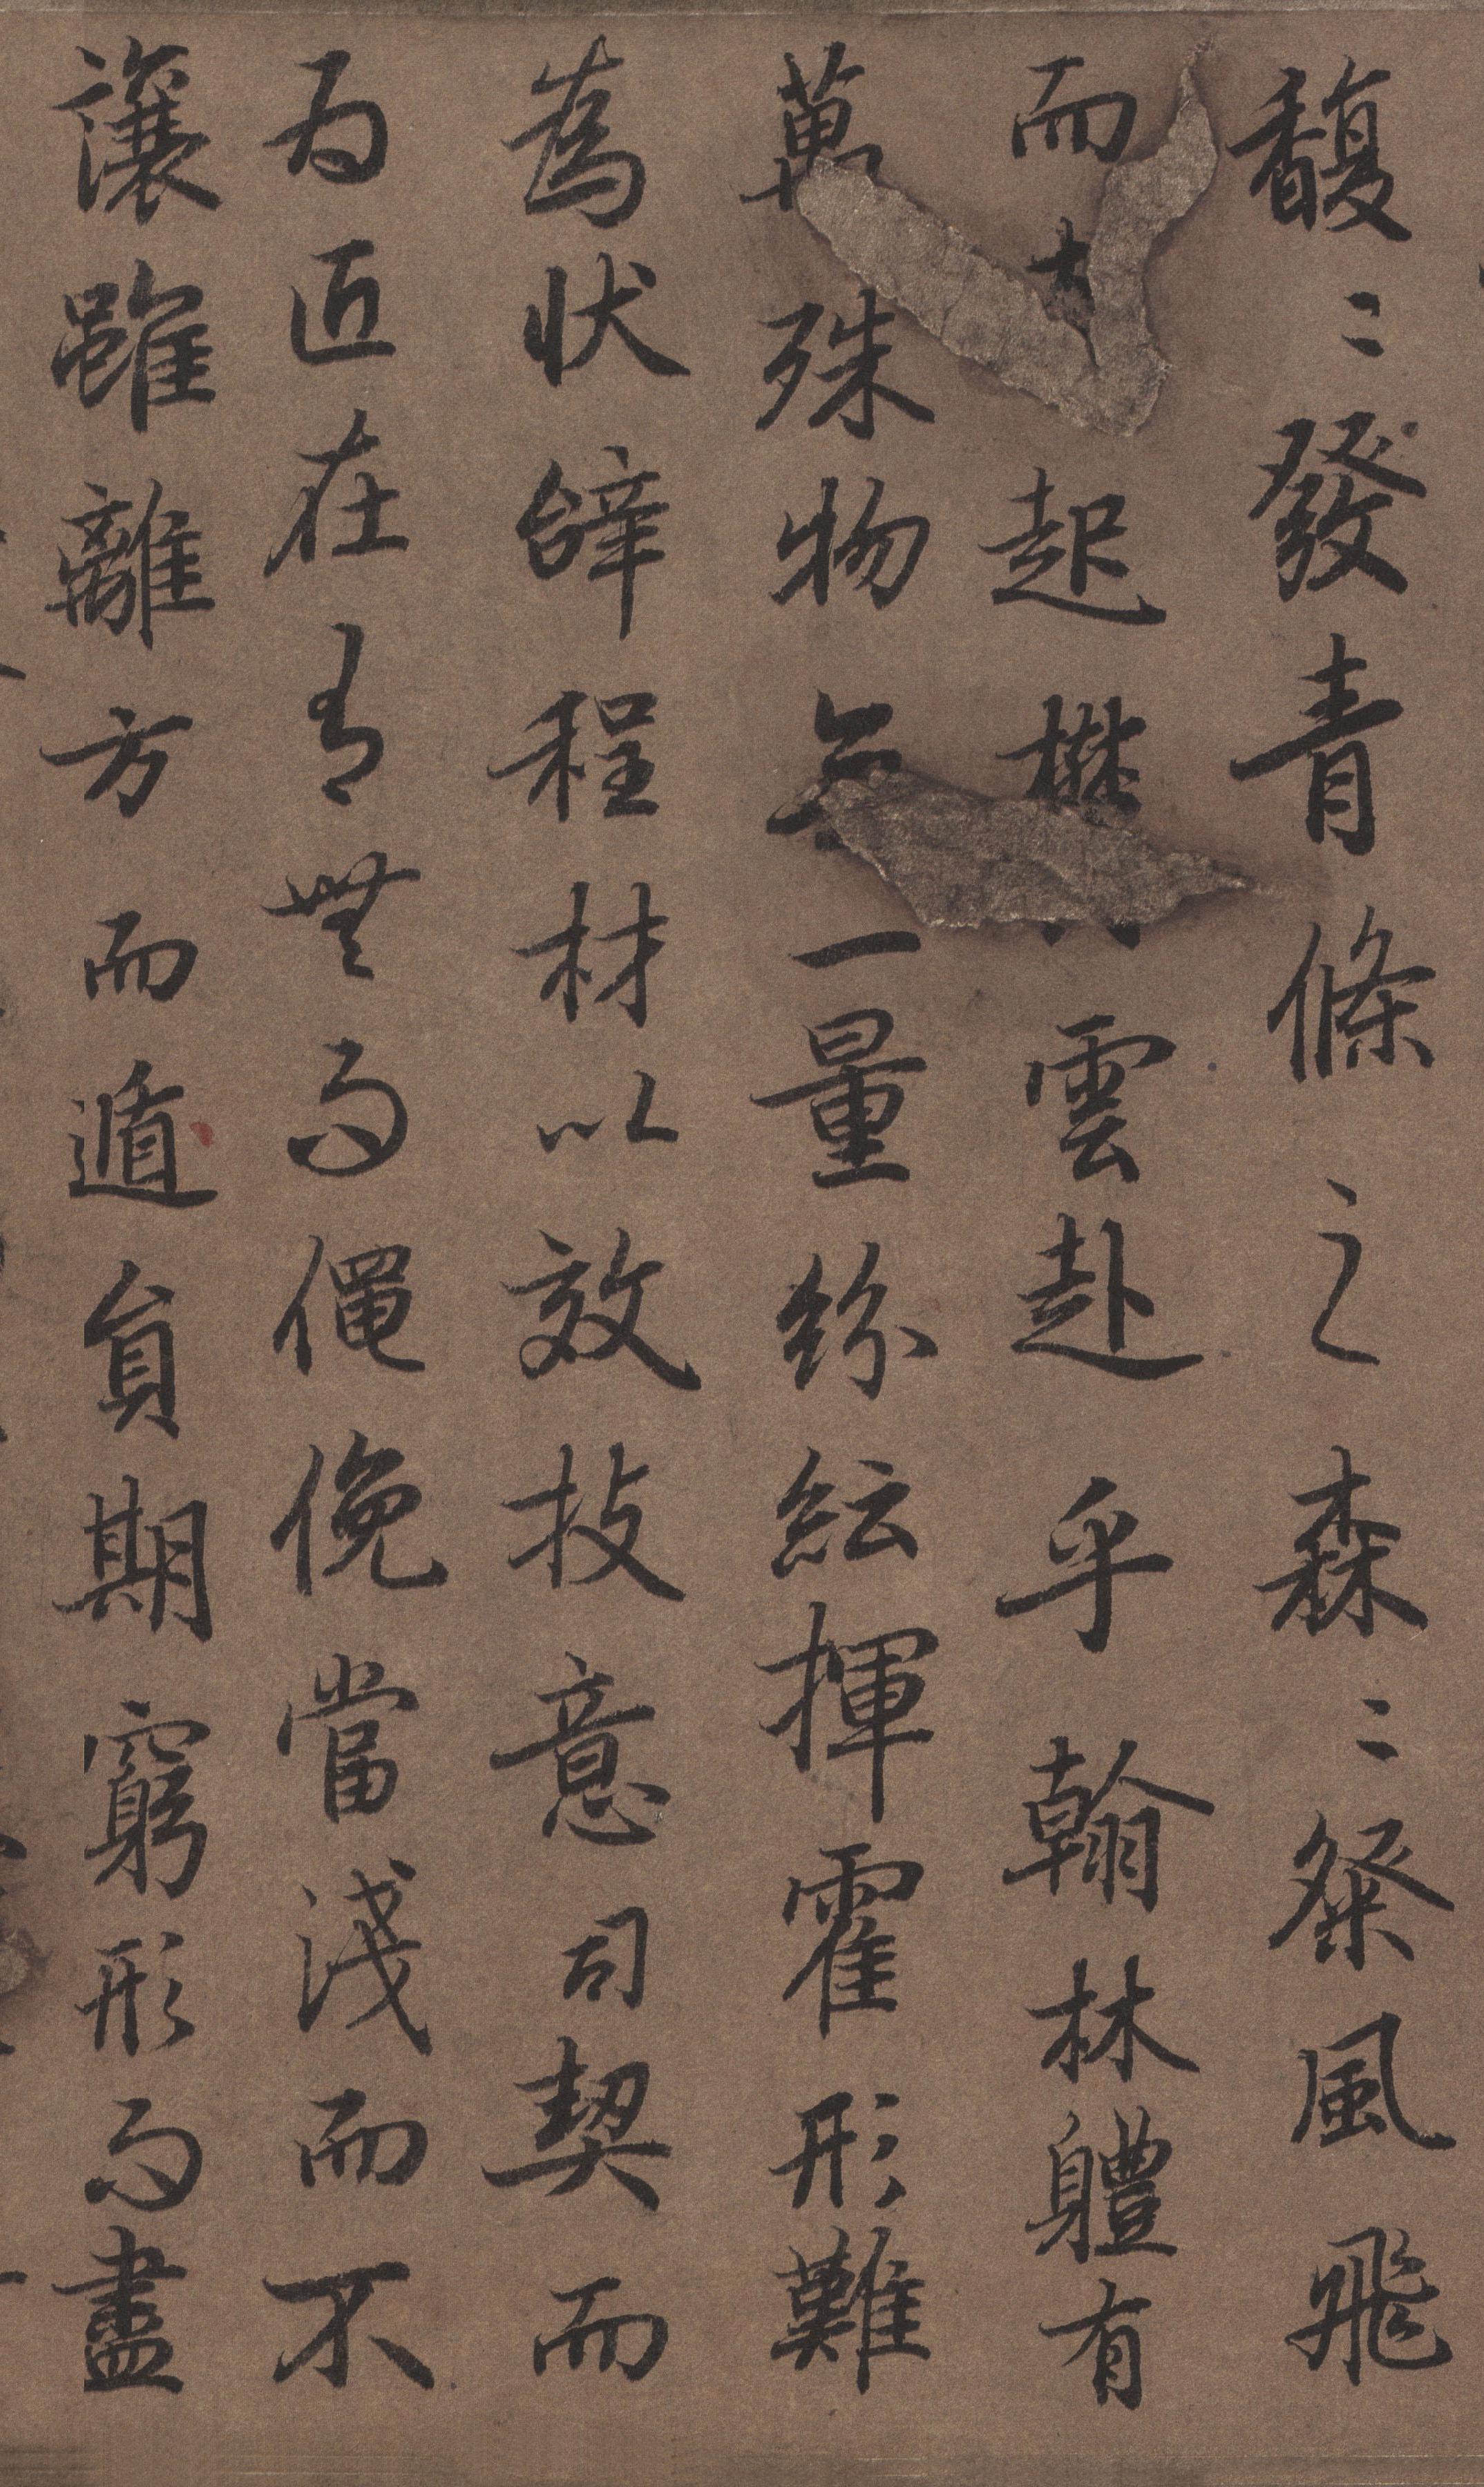 馥〻發青條之森〻粲風飛
而起雲赴乎翰林體有
萬殊物無一量紛紜揮霍形難
為狀辞程材以效技意司契而
為匠在有無而僶俛當淺而不
讓雖離方而遁員期窮形而盡